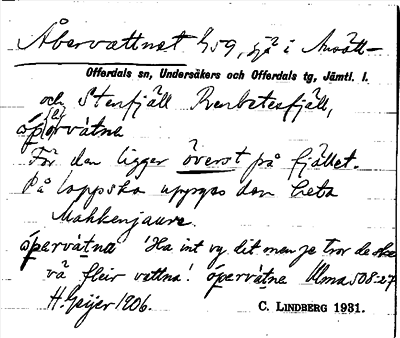 Åbervattnet 459, sjö i Ansätt-
Offerdals sn, Undersåkers och Offerdals tg, Jämtl. l.
och Stenfjäll Renbetesfjäll,
åpərvàtnə
För den ligger överst på fjället.
På lappska uppges den heta
Mahkenjaure.
åpervàtnа 'Ha int vy dit men je tror de ska
vå fleir vattna'. åpervàtne Ulma 508:27
H. Geijer 1906.
C. LINDBERG 1931.